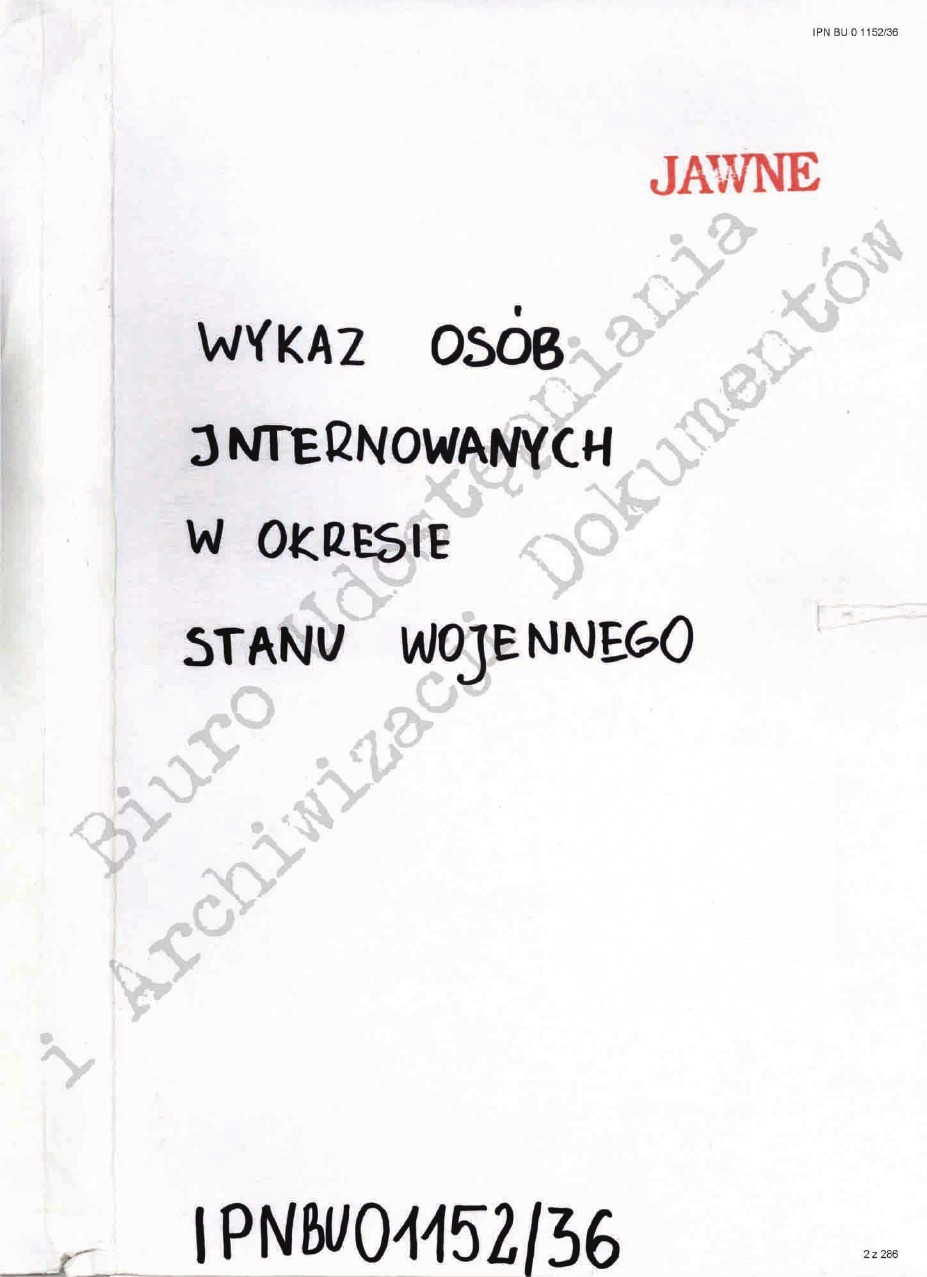 IPN BU 0 1152/36
JAWNE
WYKAZ OSÓB
JNTERNOWANYCH
W OKRESIE
STANU WOJENNEGO
Biuro Udostępniania
i Archiwizacji Dokumentów
IPNBU01152/36
2 z 286